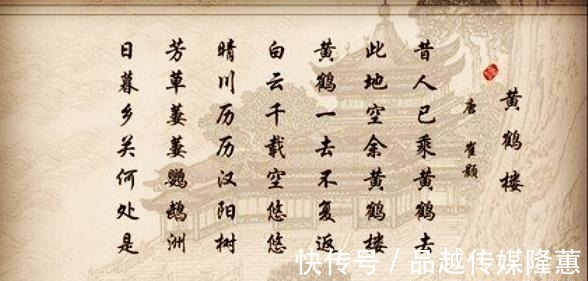 黄鹤楼
唐 崔颢
昔人已乘黄鹤去
此地空余黄鹤楼
黄鹤一去不复返
白云千载空悠悠
晴川历历汉阳树
芳草萋萋鹦鹉洲
日暮乡关何处是
快传号 / 品越传媒隆蕙